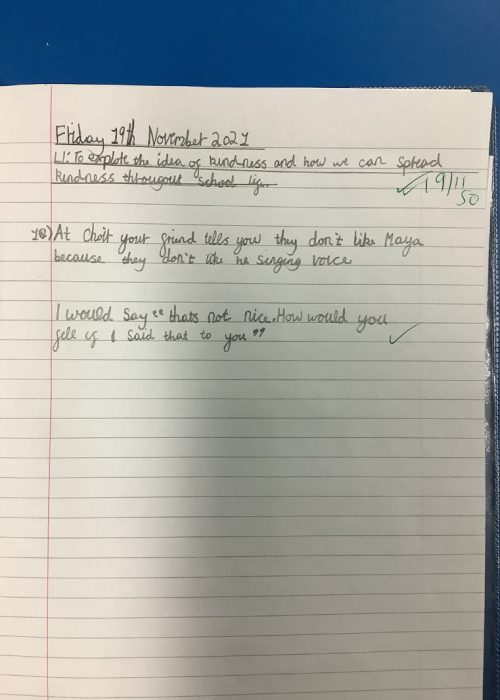 Friday 19th November 2021
LI: To explore the idea of kindness and how we can spread
kindness througout school lif..
19/11
10) At Choir your friend tells you they don't like Maya
because they don't like he singing voice
I would Say "thats not nice. How would you
fell if I Said that to you"